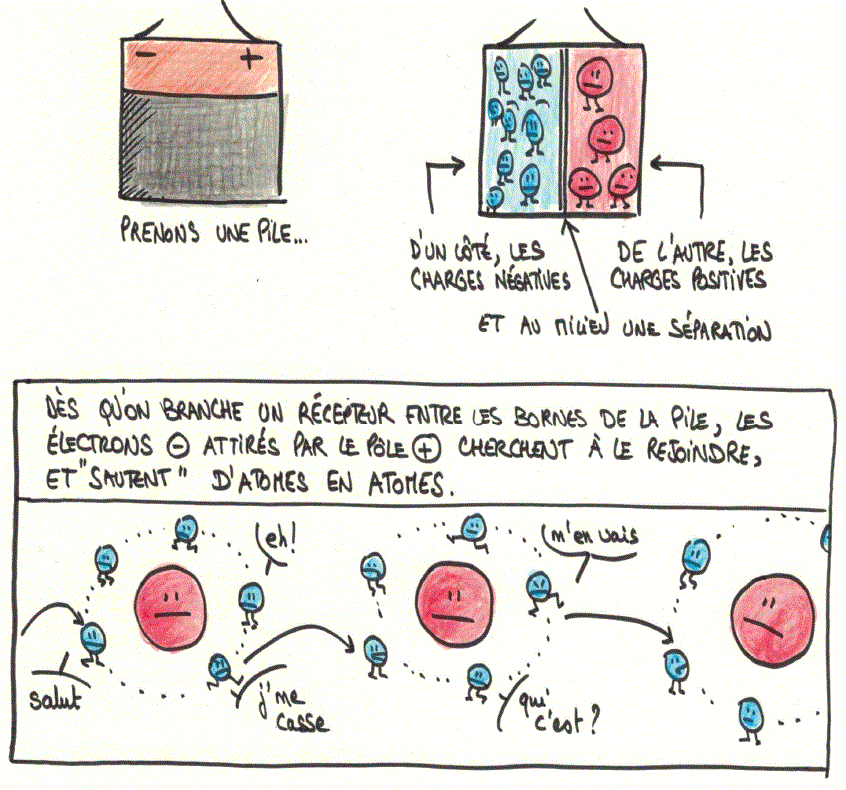 - +
PRENONS UNE PILE...
D'UN CÔTÉ, LES
CHARGES NÉGATIVES
DE L'AUTRE, LES
CHARGES POSITIVES
ET AU MILIEU UNE SÉPARATION
DÈS QU'ON BRANCHE UN RÉCEPTEUR ENTRE LES BORNES DE LA PILE, LES
ÉLECTRONS ⊖ ATTIRÉS PAR LE PÔLE ⊕ CHERCHENT À LE REJOINDRE,
ET "SAUTENT" D'ATOMES EN ATOMES.
eh!
m'en vais
salut
j'me
casse
qui
c'est?